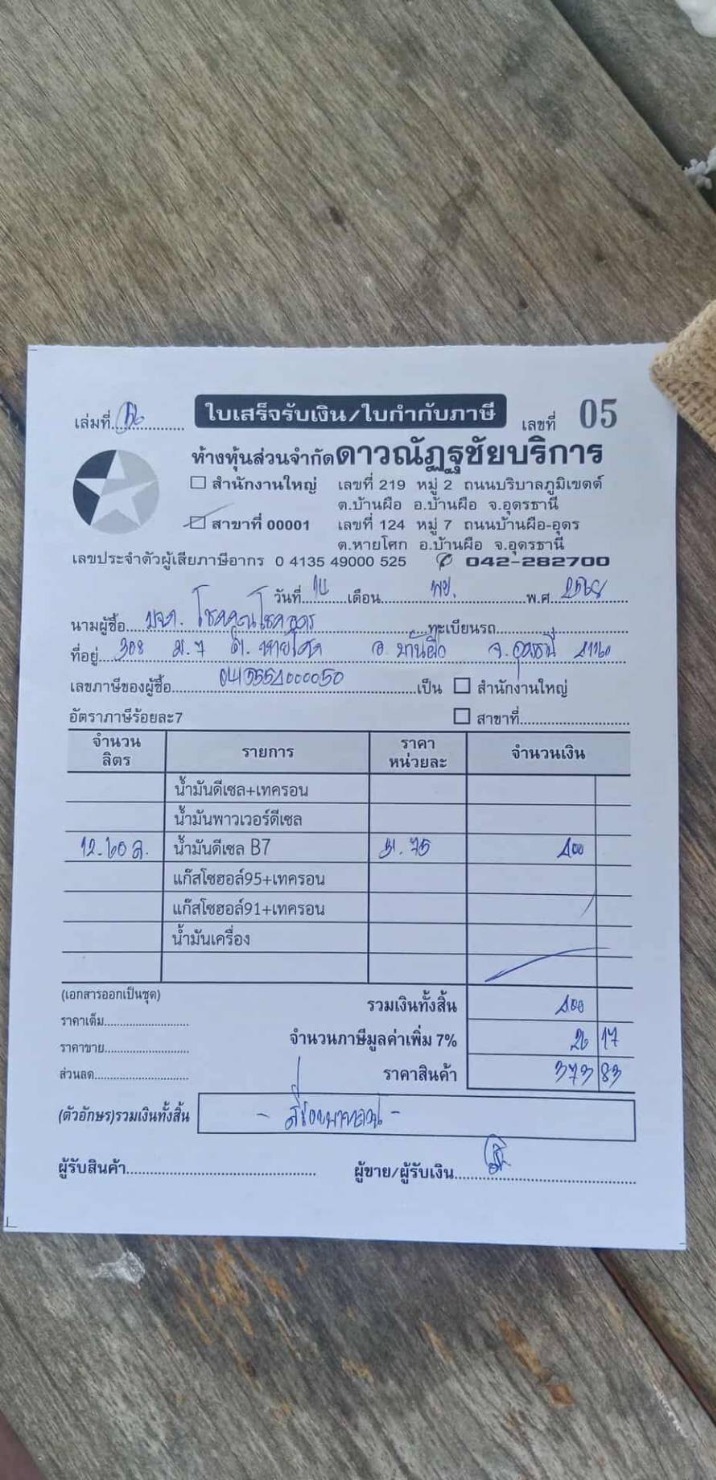 เล่มที่ ใบเสร็จรับเงิน/ใบกำกับภาษี เลขที่ 05
ห้างหุ้นส่วนจำกัดดาวณัฏฐชัยบริการ
☐ สำนักงานใหญ่ เลขที่ 219 หมู่ 2 ถนนบริบาลภูมิเขตต์
ต.บ้านผือ อ.บ้านผือ จ.อุดรธานี
☑ สาขาที่ 00001 เลขที่ 124 หมู่ 7 ถนนบ้านผือ-อุดร
ต.หายโศก อ.บ้านผือ จ.อุดรธานี
เลขประจำตัวผู้เสียภาษีอากร 0 4135 49000 525 ✆ 042-282700
วันที่ เดือน พย. พ.ศ. 2568
นามผู้ซื้อ โชคคูณโชคอุดร ทะเบียนรถ
ที่อยู่ 308 ม.7 ต.หายโศก อ.บ้านผือ จ.อุดรธานี 41160
เลขภาษีของผู้ซื้อ เป็น ☐ สำนักงานใหญ่
อัตราภาษีร้อยละ7 ☐ สาขาที่
จำนวนลิตร รายการ ราคาหน่วยละ จำนวนเงิน
น้ำมันดีเซล+เทครอน
น้ำมันพาวเวอร์ดีเซล
12.60 ล. น้ำมันดีเซล B7 31.75 400
แก๊สโซฮอล์95+เทครอน
แก๊สโซฮอล์91+เทครอน
น้ำมันเครื่อง
(เอกสารออกเป็นชุด) รวมเงินทั้งสิ้น 400
ราคาเต็ม จำนวนภาษีมูลค่าเพิ่ม 7% 26 17
ราคาขาย
ส่วนลด ราคาสินค้า 373 83
(ตัวอักษร)รวมเงินทั้งสิ้น - สี่ร้อยบาทถ้วน -
ผู้รับสินค้า ผู้ขาย/ผู้รับเงิน